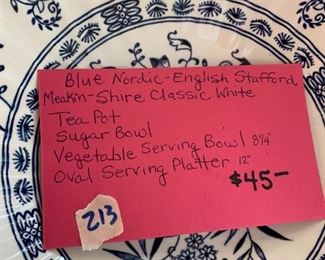 Blue Nordic-English Stafford
Meakin-Shire Classic White
Tea Pot
Sugar Bowl
Vegetable Serving Bowl 8 1/4"
Oval Serving Platter 12"
$45-
213